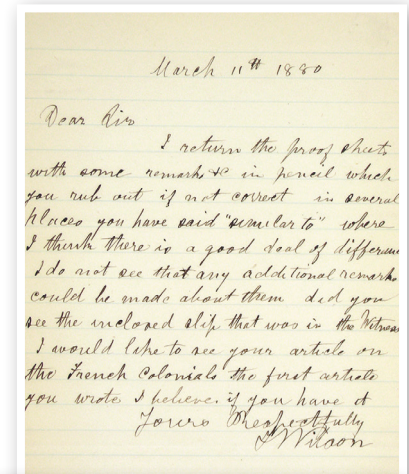 March 11th 1880
Dear Sir
I return the proof sheets
with some remarks &c in pencil which
you rub out if not correct in several
places you have said "similar to" where
I think there is a good deal of difference
I do not see that any additional remarks
could be made about them did you
see the inclosed slip that was in the Witness
I would like to see your article on
the French Colonials the first article
you wrote I believe. if you have it
Yours Respectfully
T Wilson